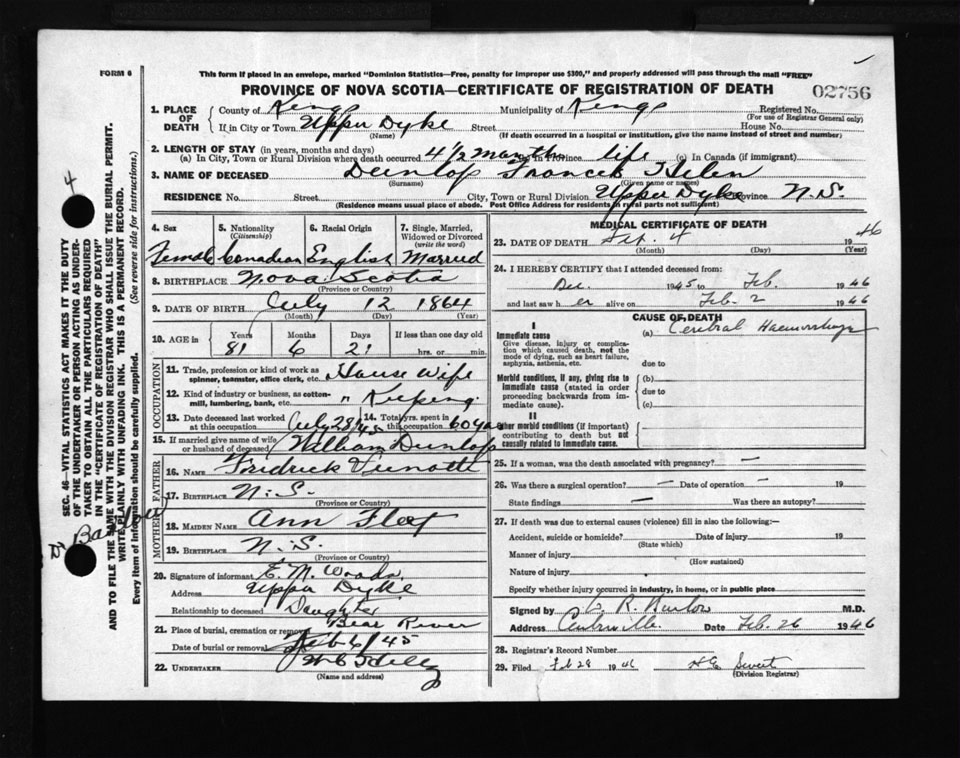 FORM 6
This form if placed in an envelope, marked "Dominion Statistics—Free, penalty for improper use $300," and properly addressed will pass through the mail "FREE"
PROVINCE OF NOVA SCOTIA—CERTIFICATE OF REGISTRATION OF DEATH
02756
1. PLACE OF DEATH
County of Kings Municipality of Kings Registered No.
(For use of Registrar General only)
If in City or Town Upper Dyke Street House No.
(Name) (If death occurred in a hospital or institution, give the name instead of street and number)
2. LENGTH OF STAY (in years, months and days)
(a) In City, Town or Rural Division where death occurred 4 1/2 months Province life (c) In Canada (if immigrant)
3. NAME OF DECEASED Dunlop Frances Helen
(Surname) (Given name or names)
RESIDENCE No. Street City, Town or Rural Division Upper Dyke Province N.S.
(Residence means usual place of abode. Post Office Address for residents in rural parts not sufficient)
4. Sex
Female
5. Nationality
(Citizenship)
Canadian
6. Racial Origin
English
7. Single, Married, Widowed or Divorced
(write the word)
Married
8. BIRTHPLACE Nova Scotia
(Province or Country)
9. DATE OF BIRTH July 12 1864
(Month) (Day) (Year)
10. AGE in
Years Months Days If less than one day old
81 6 21 hrs. or min.
OCCUPATION
11. Trade, profession or kind of work as
spinner, teamster, office clerk, etc. House Wife
12. Kind of industry or business, as cotton-
mill, lumbering, bank, etc. " Keeping
13. Date deceased last worked
at this occupation July 28/45
14. Total yrs. spent in
this occupation 60 yrs
15. If married give name of wife
or husband of deceased William Dunlop
FATHER
16. NAME Fredrick
17. BIRTHPLACE N.S.
(Province or Country)
MOTHER
18. MAIDEN NAME Ann Fleet
19. BIRTHPLACE N.S.
(Province or Country)
20. Signature of informant E. M. Woods
Address Upper Dyke
Relationship to deceased Daughter
21. Place of burial, cremation or removal Bear River
Date of burial or removal Feb 6/45
22. UNDERTAKER
(Name and address)
MEDICAL CERTIFICATE OF DEATH
23. DATE OF DEATH Feb. 4 1946
(Month) (Day) (Year)
24. I HEREBY CERTIFY that I attended deceased from:
Dec. 1945 to Feb. 1946
and last saw h er alive on Feb. 2 1946
CAUSE OF DEATH
I
Immediate cause
Give disease, injury or complica-
tion which caused death, not the
mode of dying, such as heart failure,
asphyxia, asthenia, etc.
(a) Cerebral Haemorrhage
due to
Morbid conditions, if any, giving rise to
immediate cause (stated in order
proceeding backwards from im-
mediate cause).
(b)
due to
(c)
II
Other morbid conditions (if important)
contributing to death but not
causally related to immediate cause.
25. If a woman, was the death associated with pregnancy? —
26. Was there a surgical operation? — Date of operation — 19
State findings — Was there an autopsy?
27. If death was due to external causes (violence) fill in also the following:—
Accident, suicide or homicide? Date of injury 19
(State which)
Manner of injury
(How sustained)
Nature of injury
Specify whether injury occurred in industry, in home, or in public place
Signed by R. Barlow M.D.
Address Centreville Date Feb. 26 1946
28. Registrar's Record Number
29. Filed Feb 28 1946
(Division Registrar)
SEC. 46—VITAL STATISTICS ACT MAKES IT THE DUTY
OF THE UNDERTAKER OR PERSON ACTING AS UNDER-
TAKER TO OBTAIN ALL THE PARTICULARS REQUIRED
IN THE "CERTIFICATE OF REGISTRATION OF DEATH"
AND TO FILE THE SAME WITH THE DIVISION REGISTRAR WHO SHALL ISSUE THE BURIAL PERMIT.
WRITE PLAINLY WITH UNFADING INK. THIS IS A PERMANENT RECORD.
Every item of information should be carefully supplied. (See reverse side for instructions.)
4
Dr Barlow